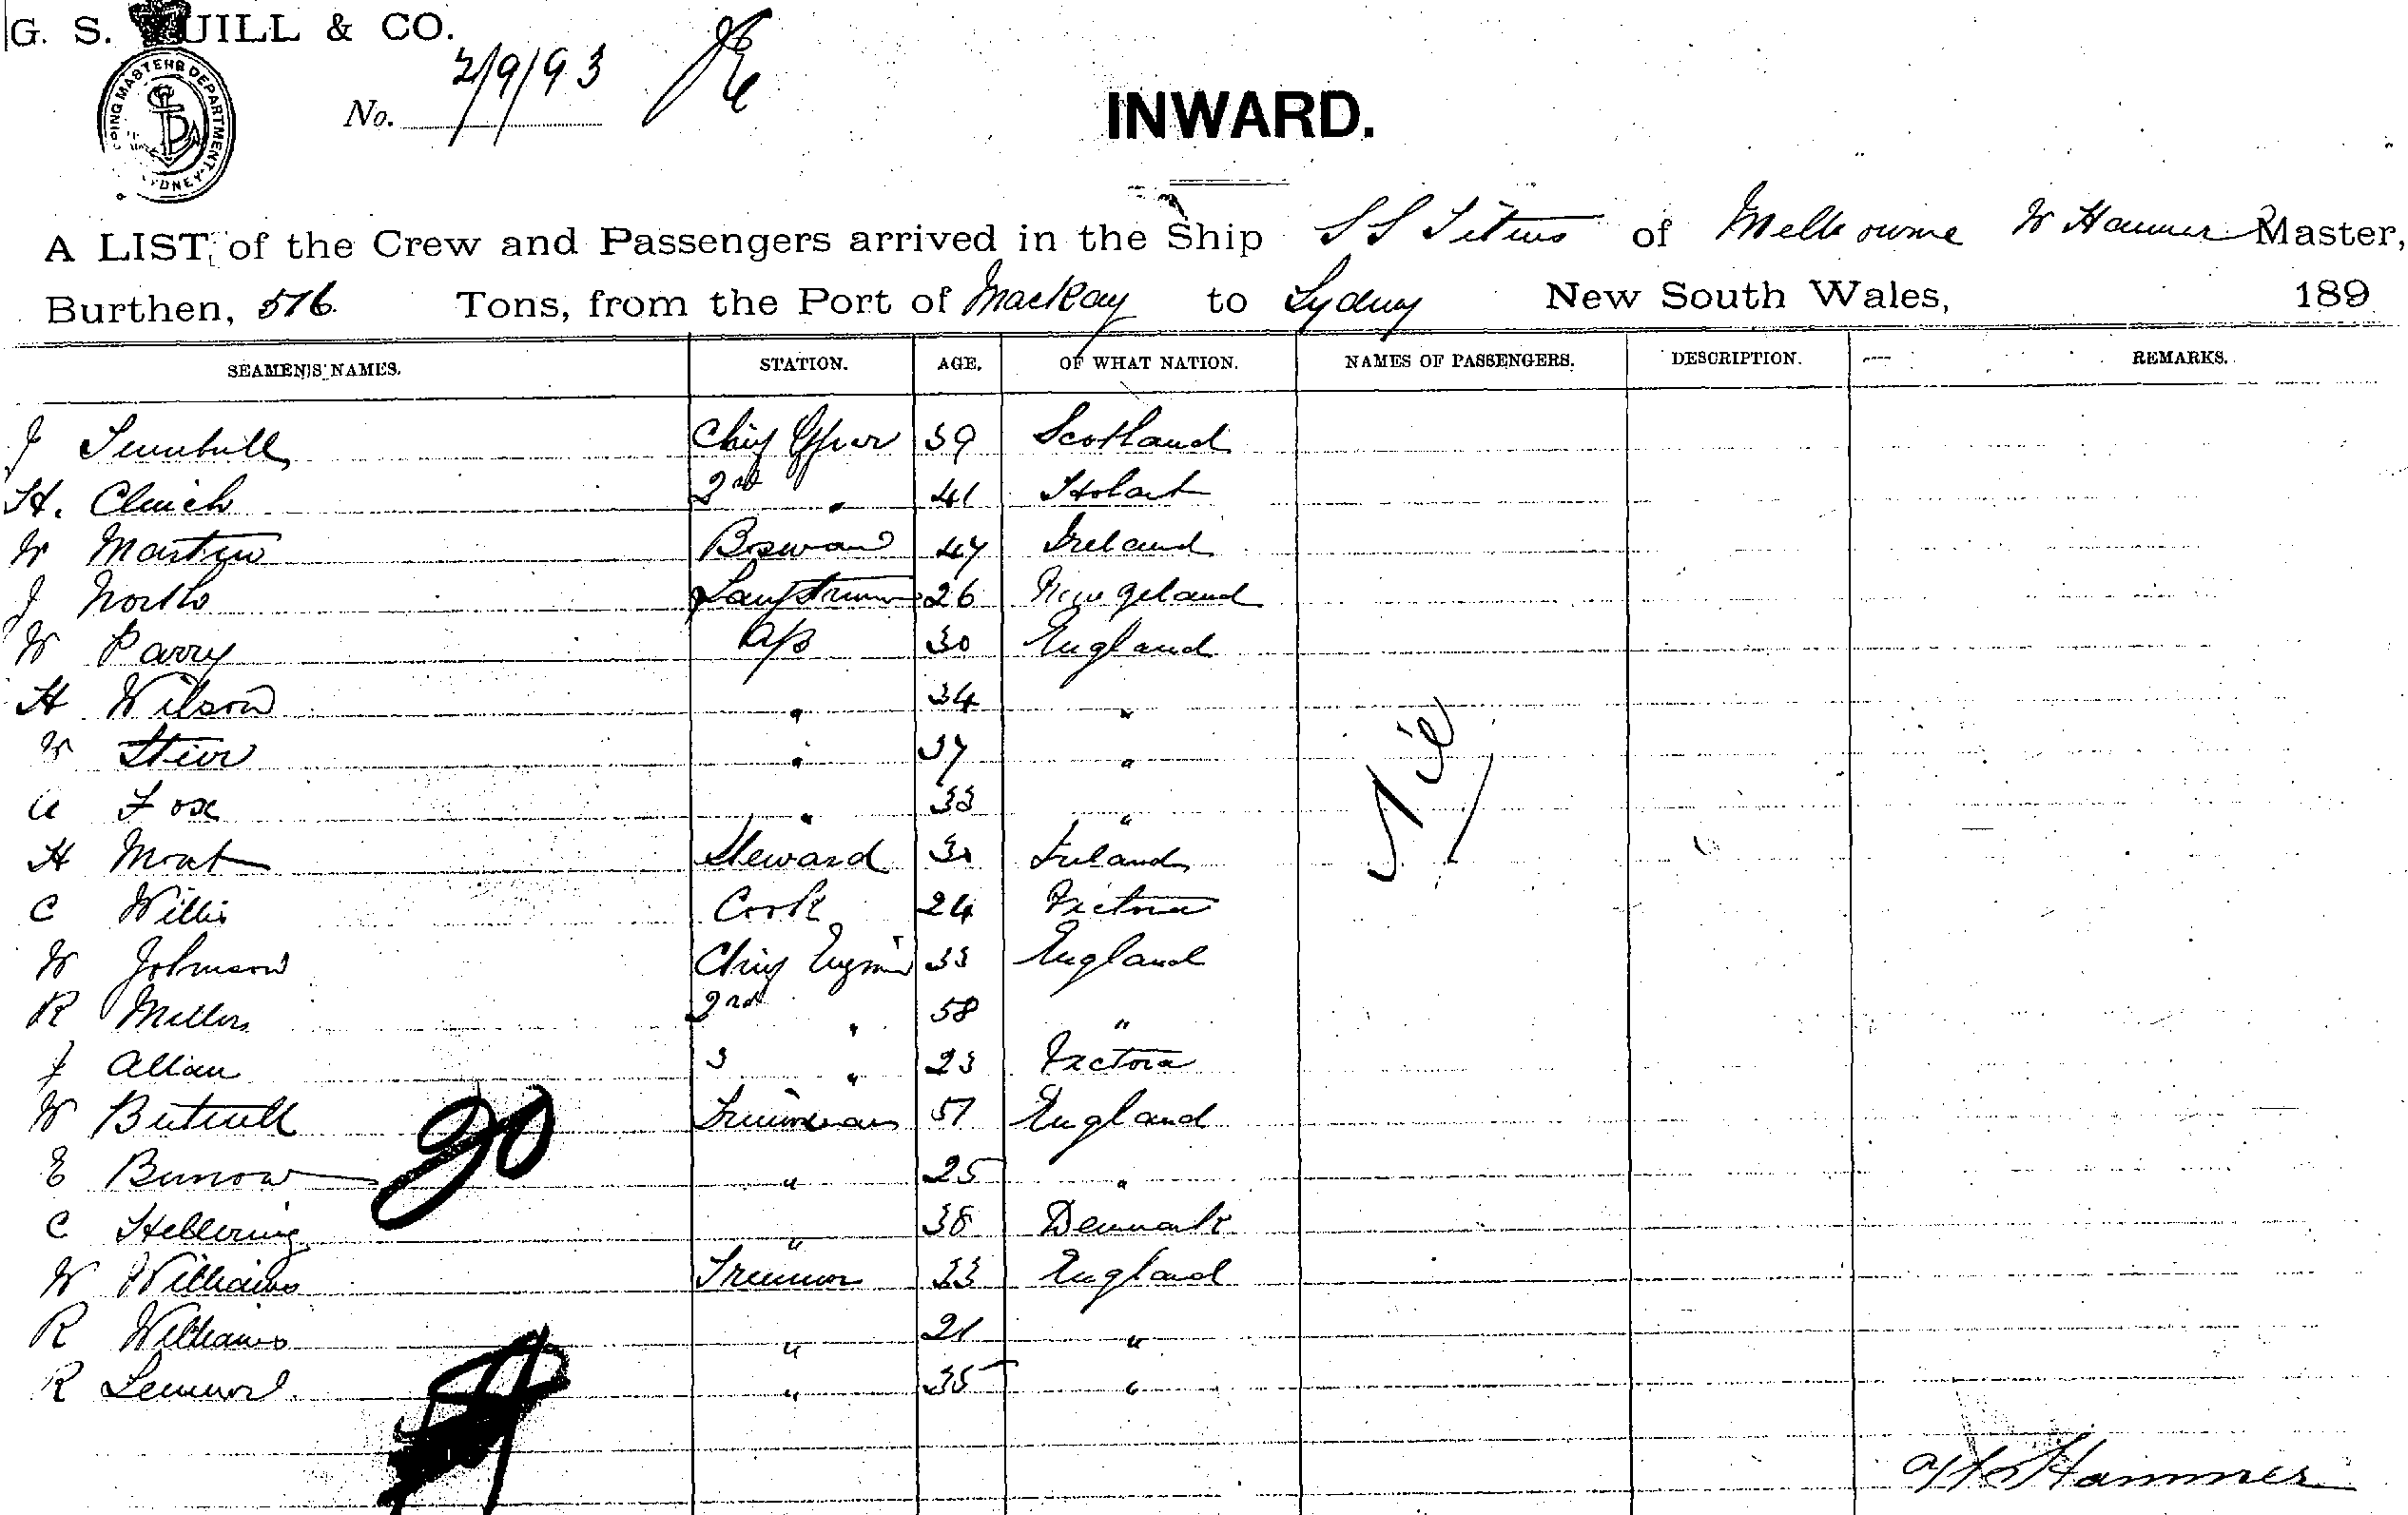 G. S. YUILL & CO.
SHIPPING MASTERS DEPARTMENT SYDNEY
No. 2/9/93
INWARD.
A LIST of the Crew and Passengers arrived in the Ship S S Titus of Melbourne W Hammer Master,
Burthen, 576 Tons, from the Port of Mackay to Sydney New South Wales, 189
SEAMEN'S NAMES. STATION. AGE. OF WHAT NATION. NAMES OF PASSENGERS. DESCRIPTION. REMARKS.
J Turnbull Chief Officer 39 Scotland
H. Clinch 2nd " 41 Hobart
W Martin Boswain 47 Ireland
J North Lamptrimmer 26 England
W Parry A/B 30 England
H Wilson " 34 "
W " 37 "
A Fox " 33 "
H Moat Steward 30 Ireland
C Willis Cook 24 Victoria
W Johnson Chief Engin 33 England
R Millers 2nd " 58 "
J Allan 3 " 23 Victoria
W Fireman 51 England
E Burrow " 25 "
C Hellering " 38 Denmark
W Williams Trimmer 23 England
R Williams " 21 "
R Lennox " 35 "
Nil
20
W Hammer